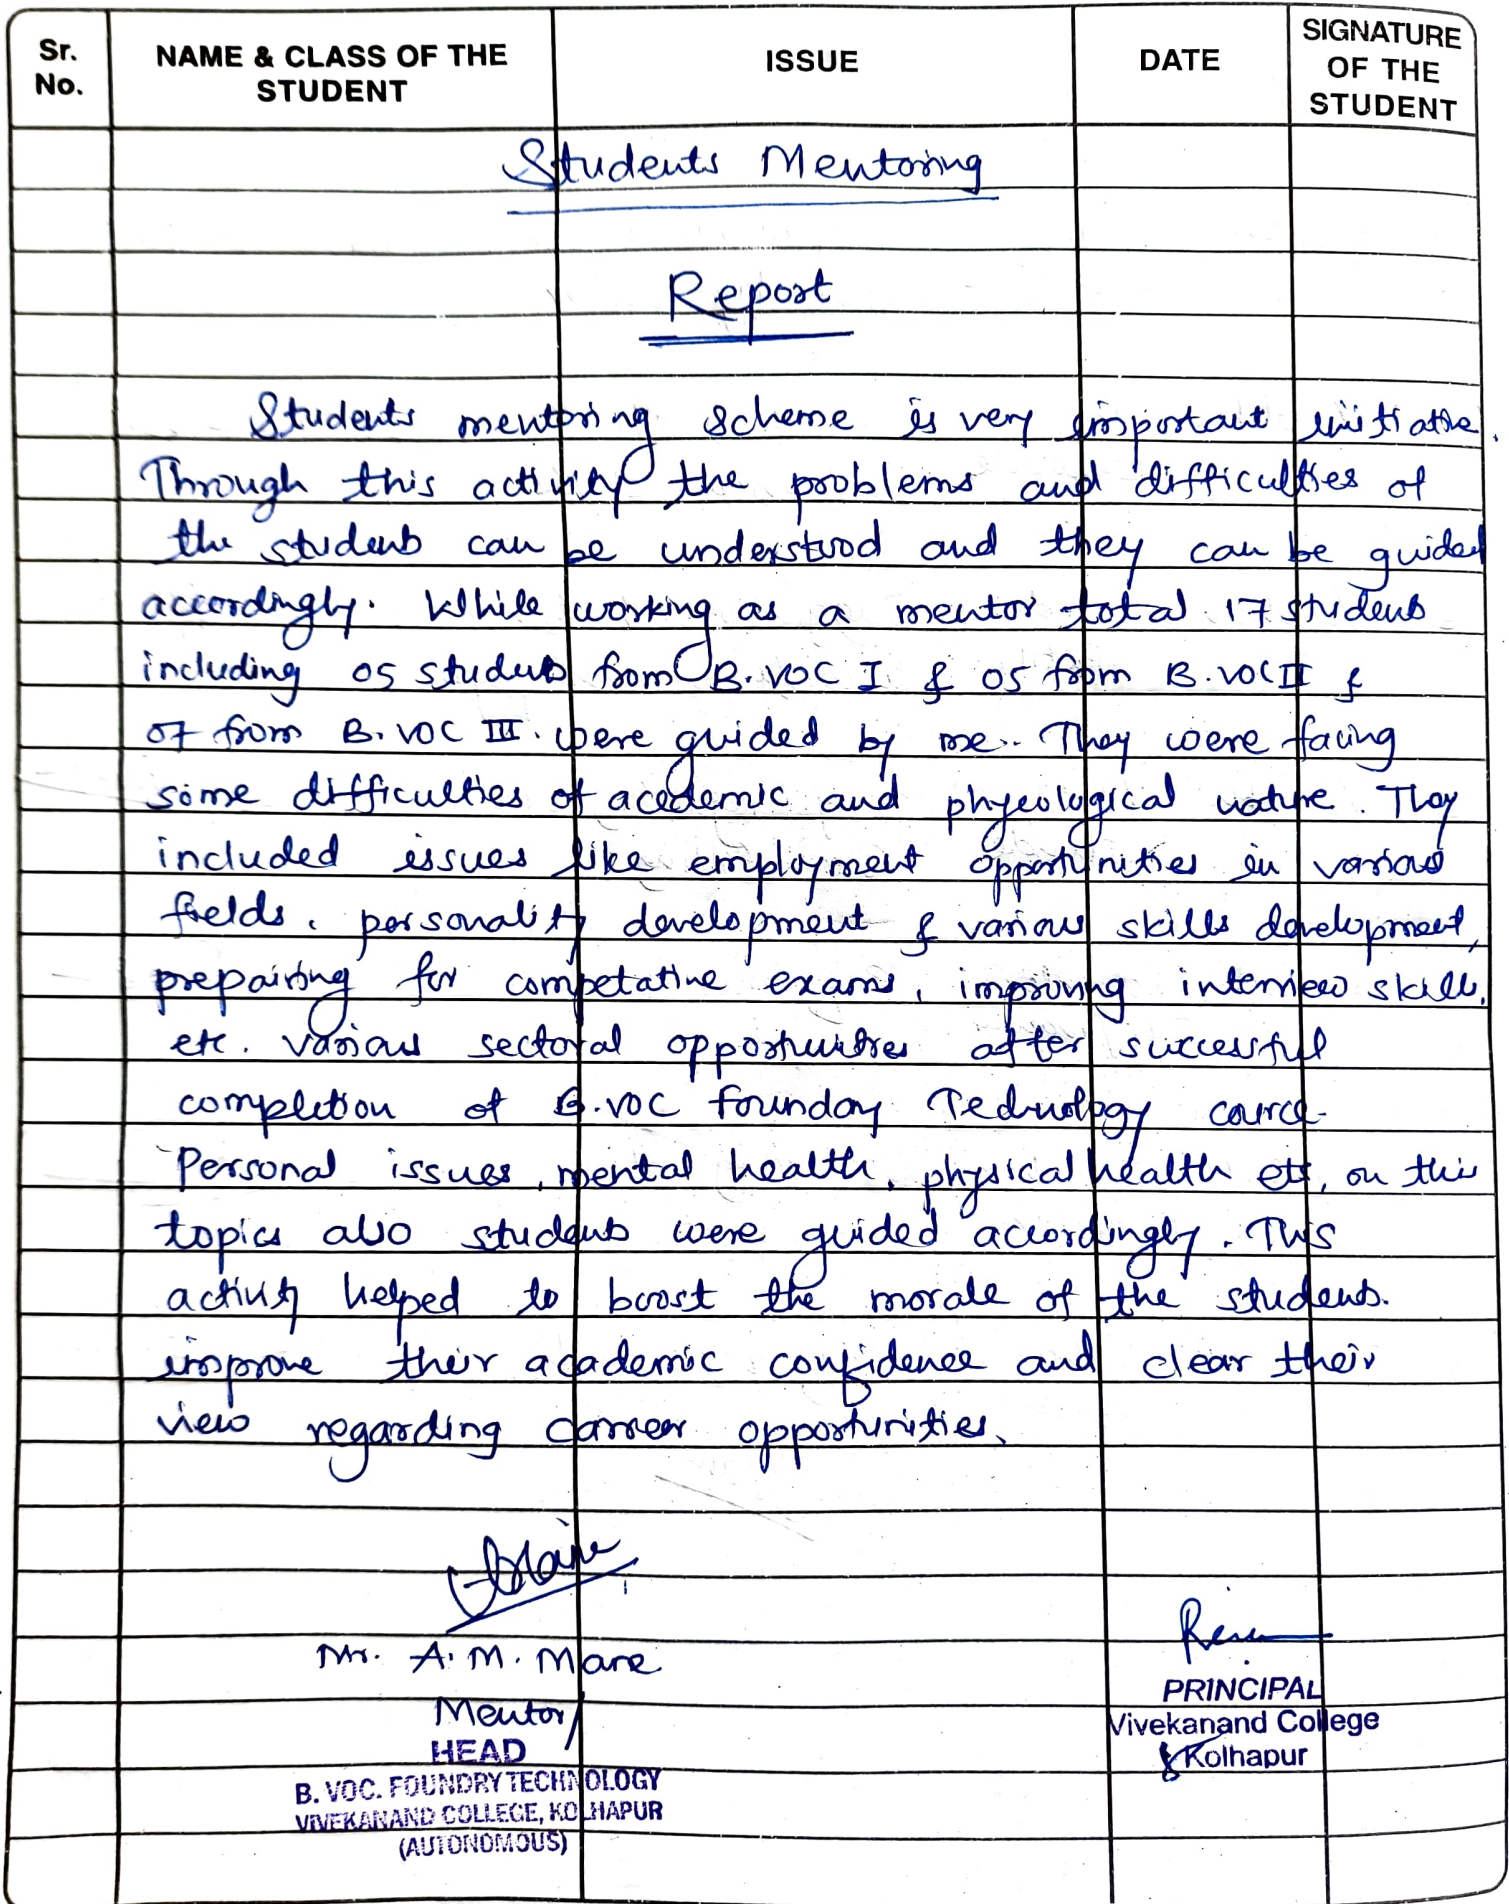 Sr. No.
NAME & CLASS OF THE STUDENT
ISSUE
DATE
SIGNATURE OF THE STUDENT
Students Mentoring
Report
Students mentoring scheme is very important initiative.
Through this activity the problems and difficulties of
the students can be understood and they can be guided
accordingly. While working as a mentor total 17 students
including 05 students from B.VOC I & 05 from B.VOC II &
07 from B.VOC III. were guided by me.. They were facing
some difficulties of acedemic and phycological nature. They
included issues like employment opportunities in various
fields, personality development & various skills development,
prepairing for competative exams, improving interview skills,
etc. various sectoral opportunities after successful
completion of B.VOC Foundary Technology cource.
Personal issues, mental health, physical health etc, on this
topics also students were guided accordingly. This
activity helped to boost the morale of the students.
improve their academic confidence and clear their
view regarding carreer opportunities.
Mr. A. M. Mane
Mentor/
HEAD
B. VOC. FOUNDRY TECHNOLOGY
VIVEKANAND COLLEGE, KOLHAPUR
(AUTONOMOUS)
PRINCIPAL
Vivekanand College
Kolhapur